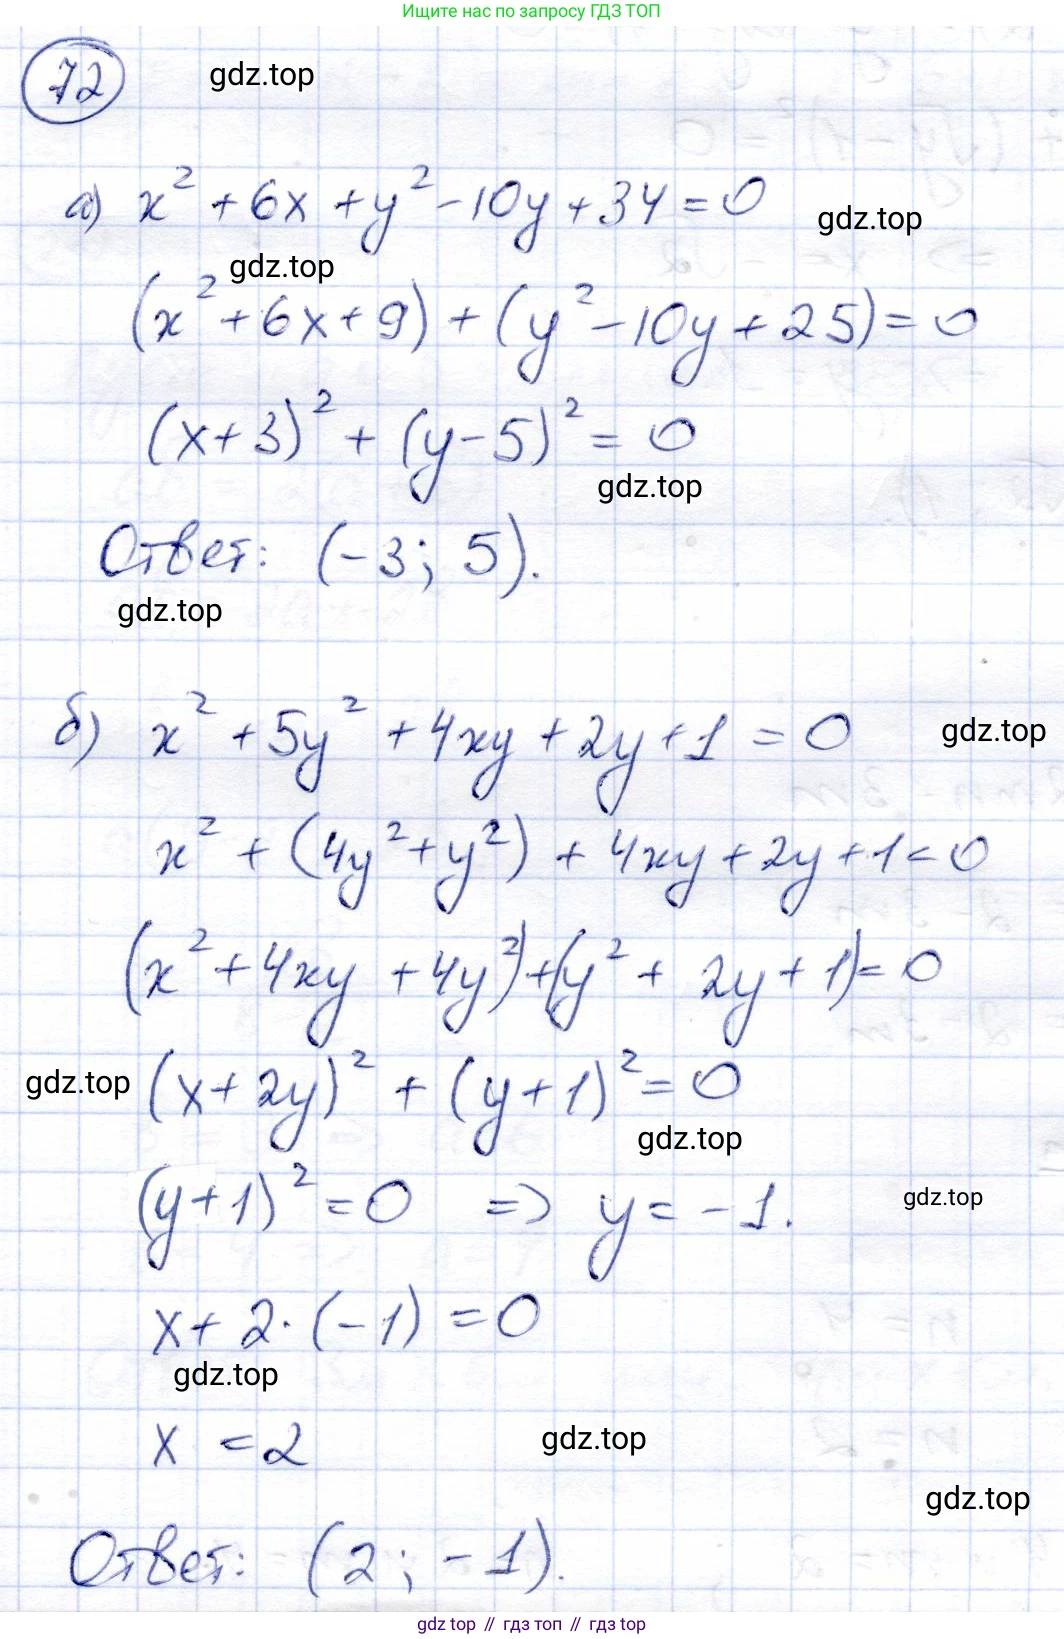 Ищите нас по запросу ГДЗ ТОП
72
gdz.top
а) x² + 6x + y² - 10y + 34 = 0
gdz.top
gdz.top
(x² + 6x + 9) + (y² - 10y + 25) = 0
(x + 3)² + (y - 5)² = 0
gdz.top
Ответ: (-3; 5).
gdz.top
б) x² + 5y² + 4xy + 2y + 1 = 0
gdz.top
x² + (4y² + y²) + 4xy + 2y + 1 = 0
(x² + 4xy + 4y²) + (y² + 2y + 1) = 0
gdz.top
(x + 2y)² + (y + 1)² = 0
gdz.top
(y + 1)² = 0 => y = -1.
gdz.top
x + 2·(-1) = 0
gdz.top
x = 2
gdz.top
gdz.top
Ответ: (2; -1).
gdz top // гдз топ // gdz top